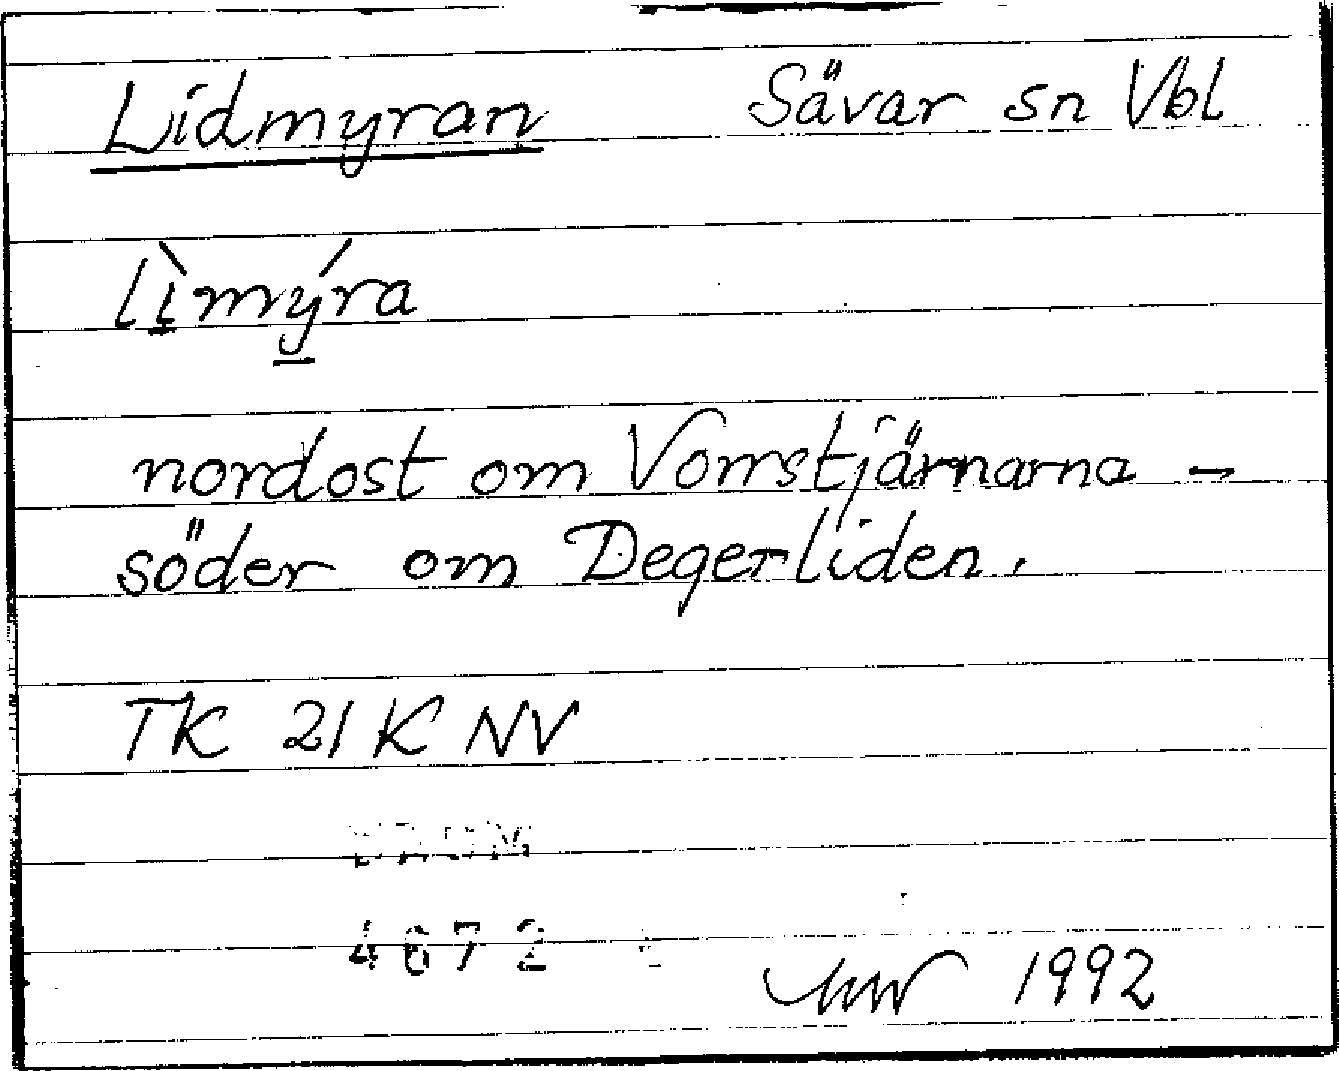 Lidmyran Sävar sn Vbl
lìmýra
nordost om Vorrstjärnarna –
söder om Degerliden.
TK 21 K NV
DAUM
4672
1992